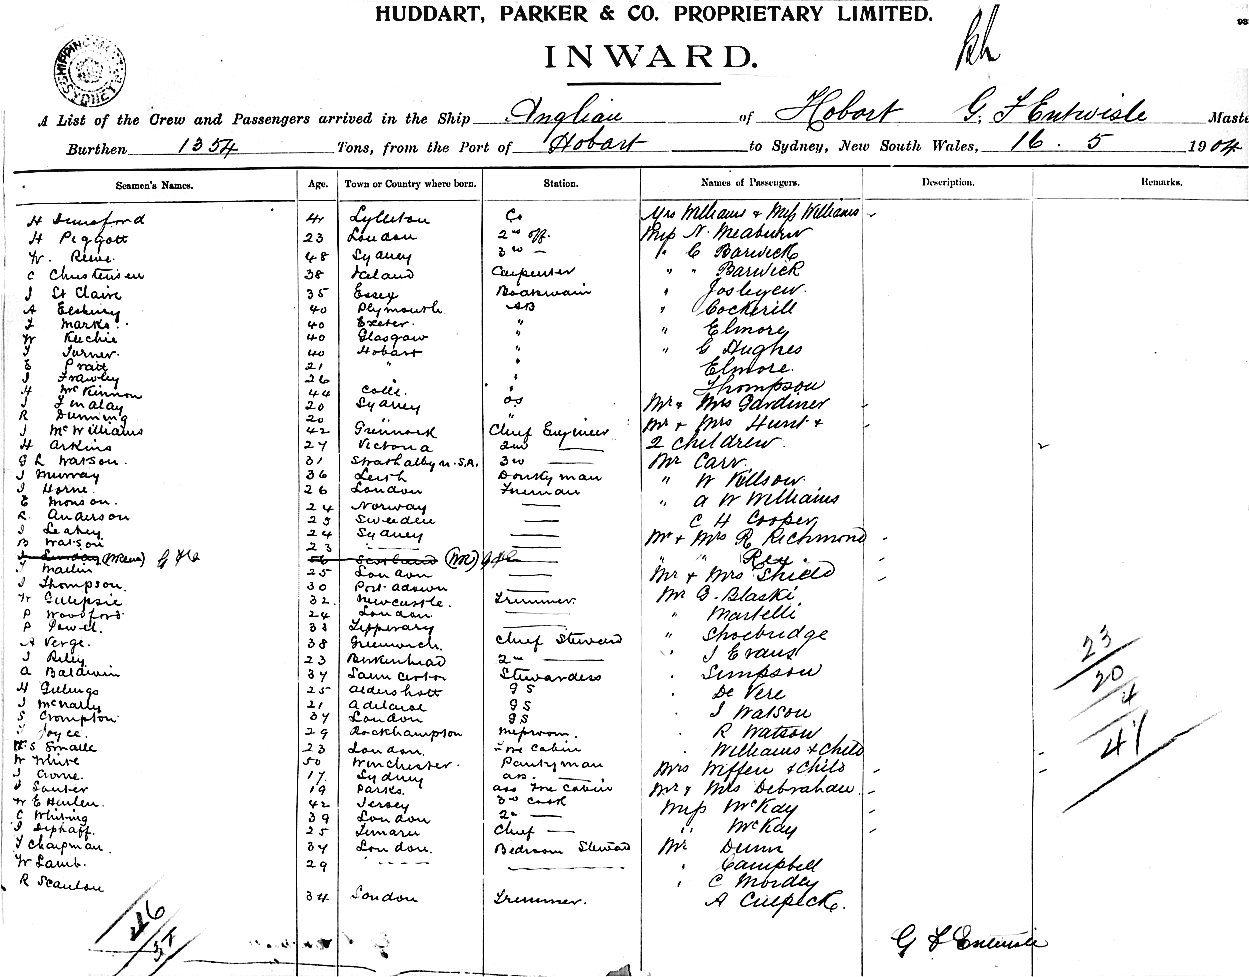 HUDDART, PARKER & CO. PROPRIETARY LIMITED.
INWARD.
SHIPPING SYDNEY
A List of the Crew and Passengers arrived in the Ship Anglian of Hobart G. F Entwisle Maste
Burthen 1354 Tons, from the Port of Hobart to Sydney, New South Wales, 16 . 5 1904
Seamen's Names. Age. Town or Country where born. Station. Names of Passengers. Description. Remarks.
H 41 Lyttleton Co Mrs Williams & Miss Williams
H Piggott 23 London 2nd off. Miss N. Meaburn
W. 48 Sydney 3rd — " C Barwick
C Christensen 38 Iceland Carpenter " " Barwick
J St Claire 35 Essex Boatswain "
A Elsbury 40 Plymouth AB " Cockerill
J Marks 40 Exeter " " Elmore
W 40 Glasgow " " G Hughes
J Turner 40 Hobart " Elmore.
E Pratt 21 " " Thompson
J Frawley 26 "
H McKinnon 44 " Mr & Mrs Gardiner
J Finalay 20 Sydney OS Mr & Mrs Hunt &
R Dunning 20 " " 2 children
J McWilliams 42 Greenock Chief Engineer Mr Carr.
H Arkins 27 Victoria 2nd —
G R Watson. 31 Strathalbyn. S.A. 3rd — " W
J Murray 36 Leith Donkyman " A W Williams
J Horne. 26 London Fireman C H Cooper
E Monson. 24 Norway — Mr & Mrs R Richmond
R. Anderson 25 Sweeden — " " Rex
J Leahey 24 Sydney — Mr & Mrs Shield
B Watson 23 — Mr G. Blaski
56 Scotland
J Martin 25 London — " Martelli
J Thompson. 30 Port — " Shoebridge
W Gillepsie 32. Newcastle. Trimmer " J Evans
P Woodford 24 London — Simpson
P 33 Tipperary — De Vere
A Verge. 38 Greenwich. Chief Steward J Watson
J Riley 23 Birkenhead 2nd — R Watson
A Baldwin 37 Launceston Stewardess Williams & Child
H Gillings 25 Aldershott GS Mrs Wiffen & Child
J McNally 21 Adelaide GS Mr & Mrs Debrahaw.
S Crompton 37 London GS Miss McKay
J Joyce. 29 Rockhampton Messroom. " McKay
H S Smalle 23 London. Fore Cabin Mr Dunn
W White 50 Winchester. Pantyman " Campbell
J Crone. 17 Sydney as. — " C Mordey
J 19 Parks. ass Fore Cabin A Culpeck.
W E 42 Jersey 3rd cook
C Whiting 39 London 2nd —
J 25 Timaru Chief —
J Chapman. 37 London. Bedroom Steward
W Lamb. 29
R Scanlon 34 London Trimmer.
46
37
23
20
4
47
G F Entwisle